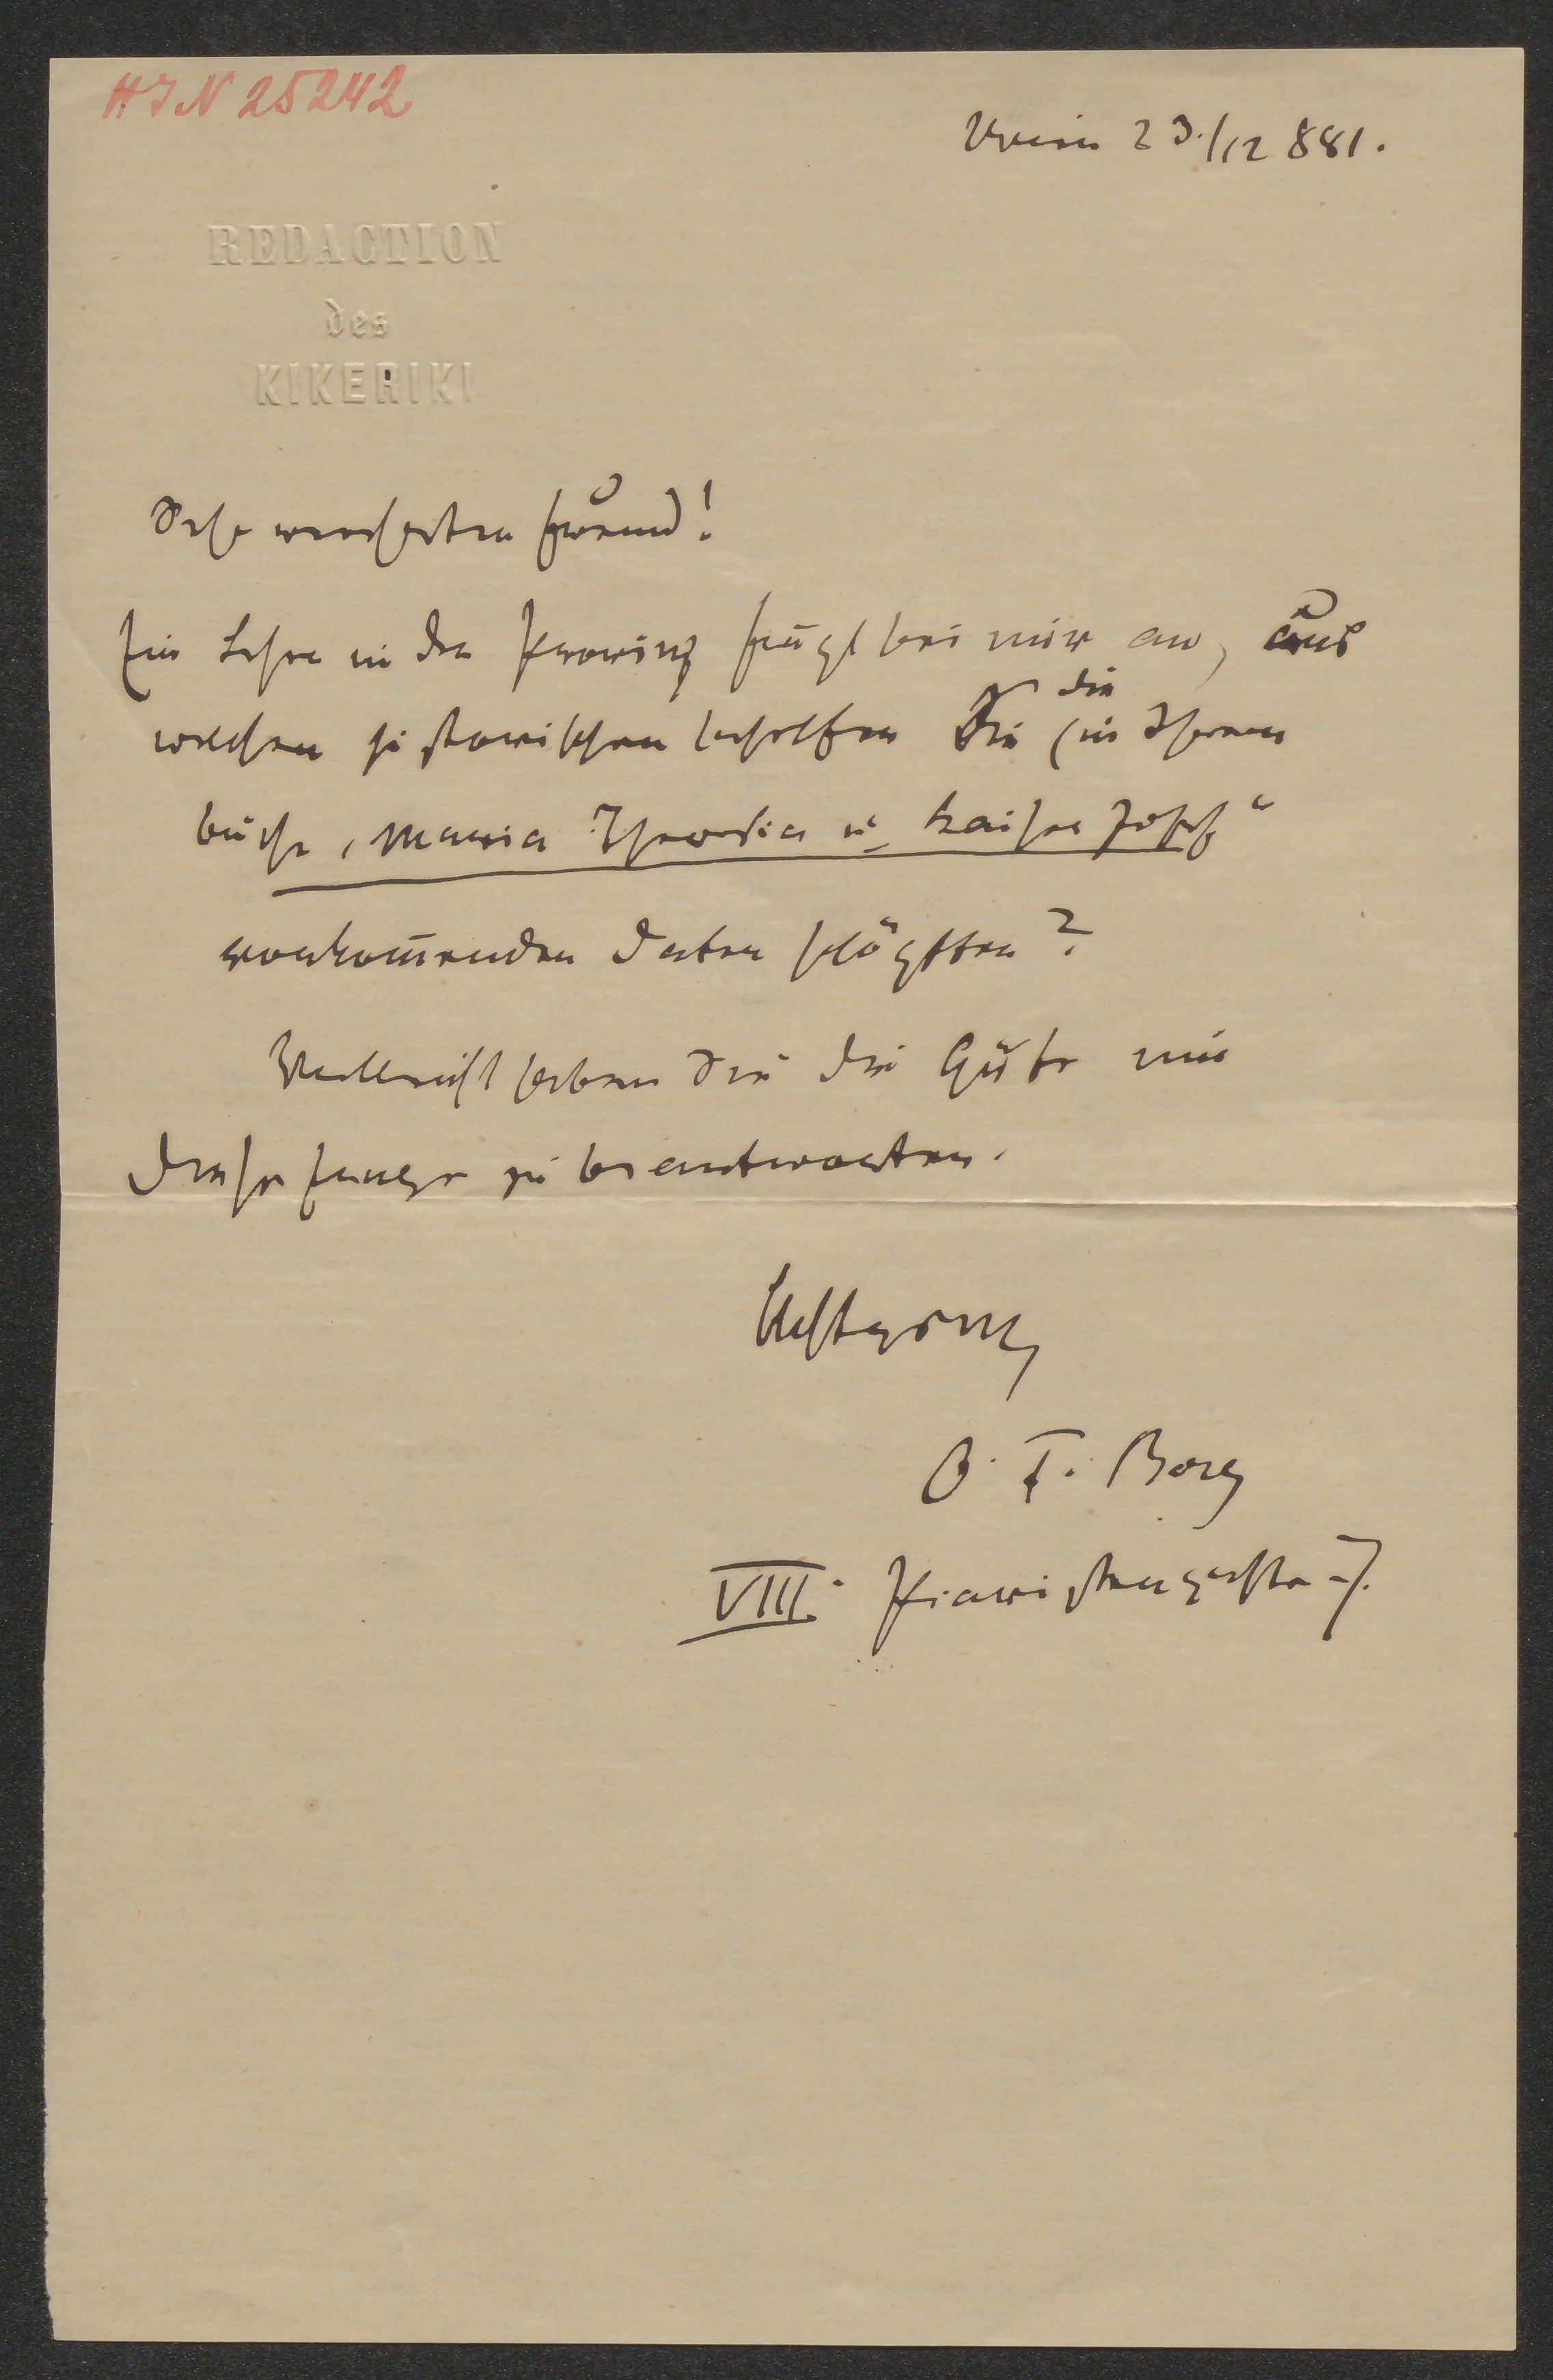 HIN 25242
Wien 23./12 881.
REDACTION
des
KIKERIKI
Sehr verehrter Freund!
Ein Lehrer in der Provinz frägt bei mir an, aus
welchen historischen Behelfen Sie die (in Ihrem
Buche „Maria Theresia u. Kaiser Josef“
vorkommenden Daten schöpften?
Vielleicht haben Sie die Güte mir
diese Frage zu beantworten.
Achtungsvoll
O. F. Berg
VIII. Piaristengasse 7.